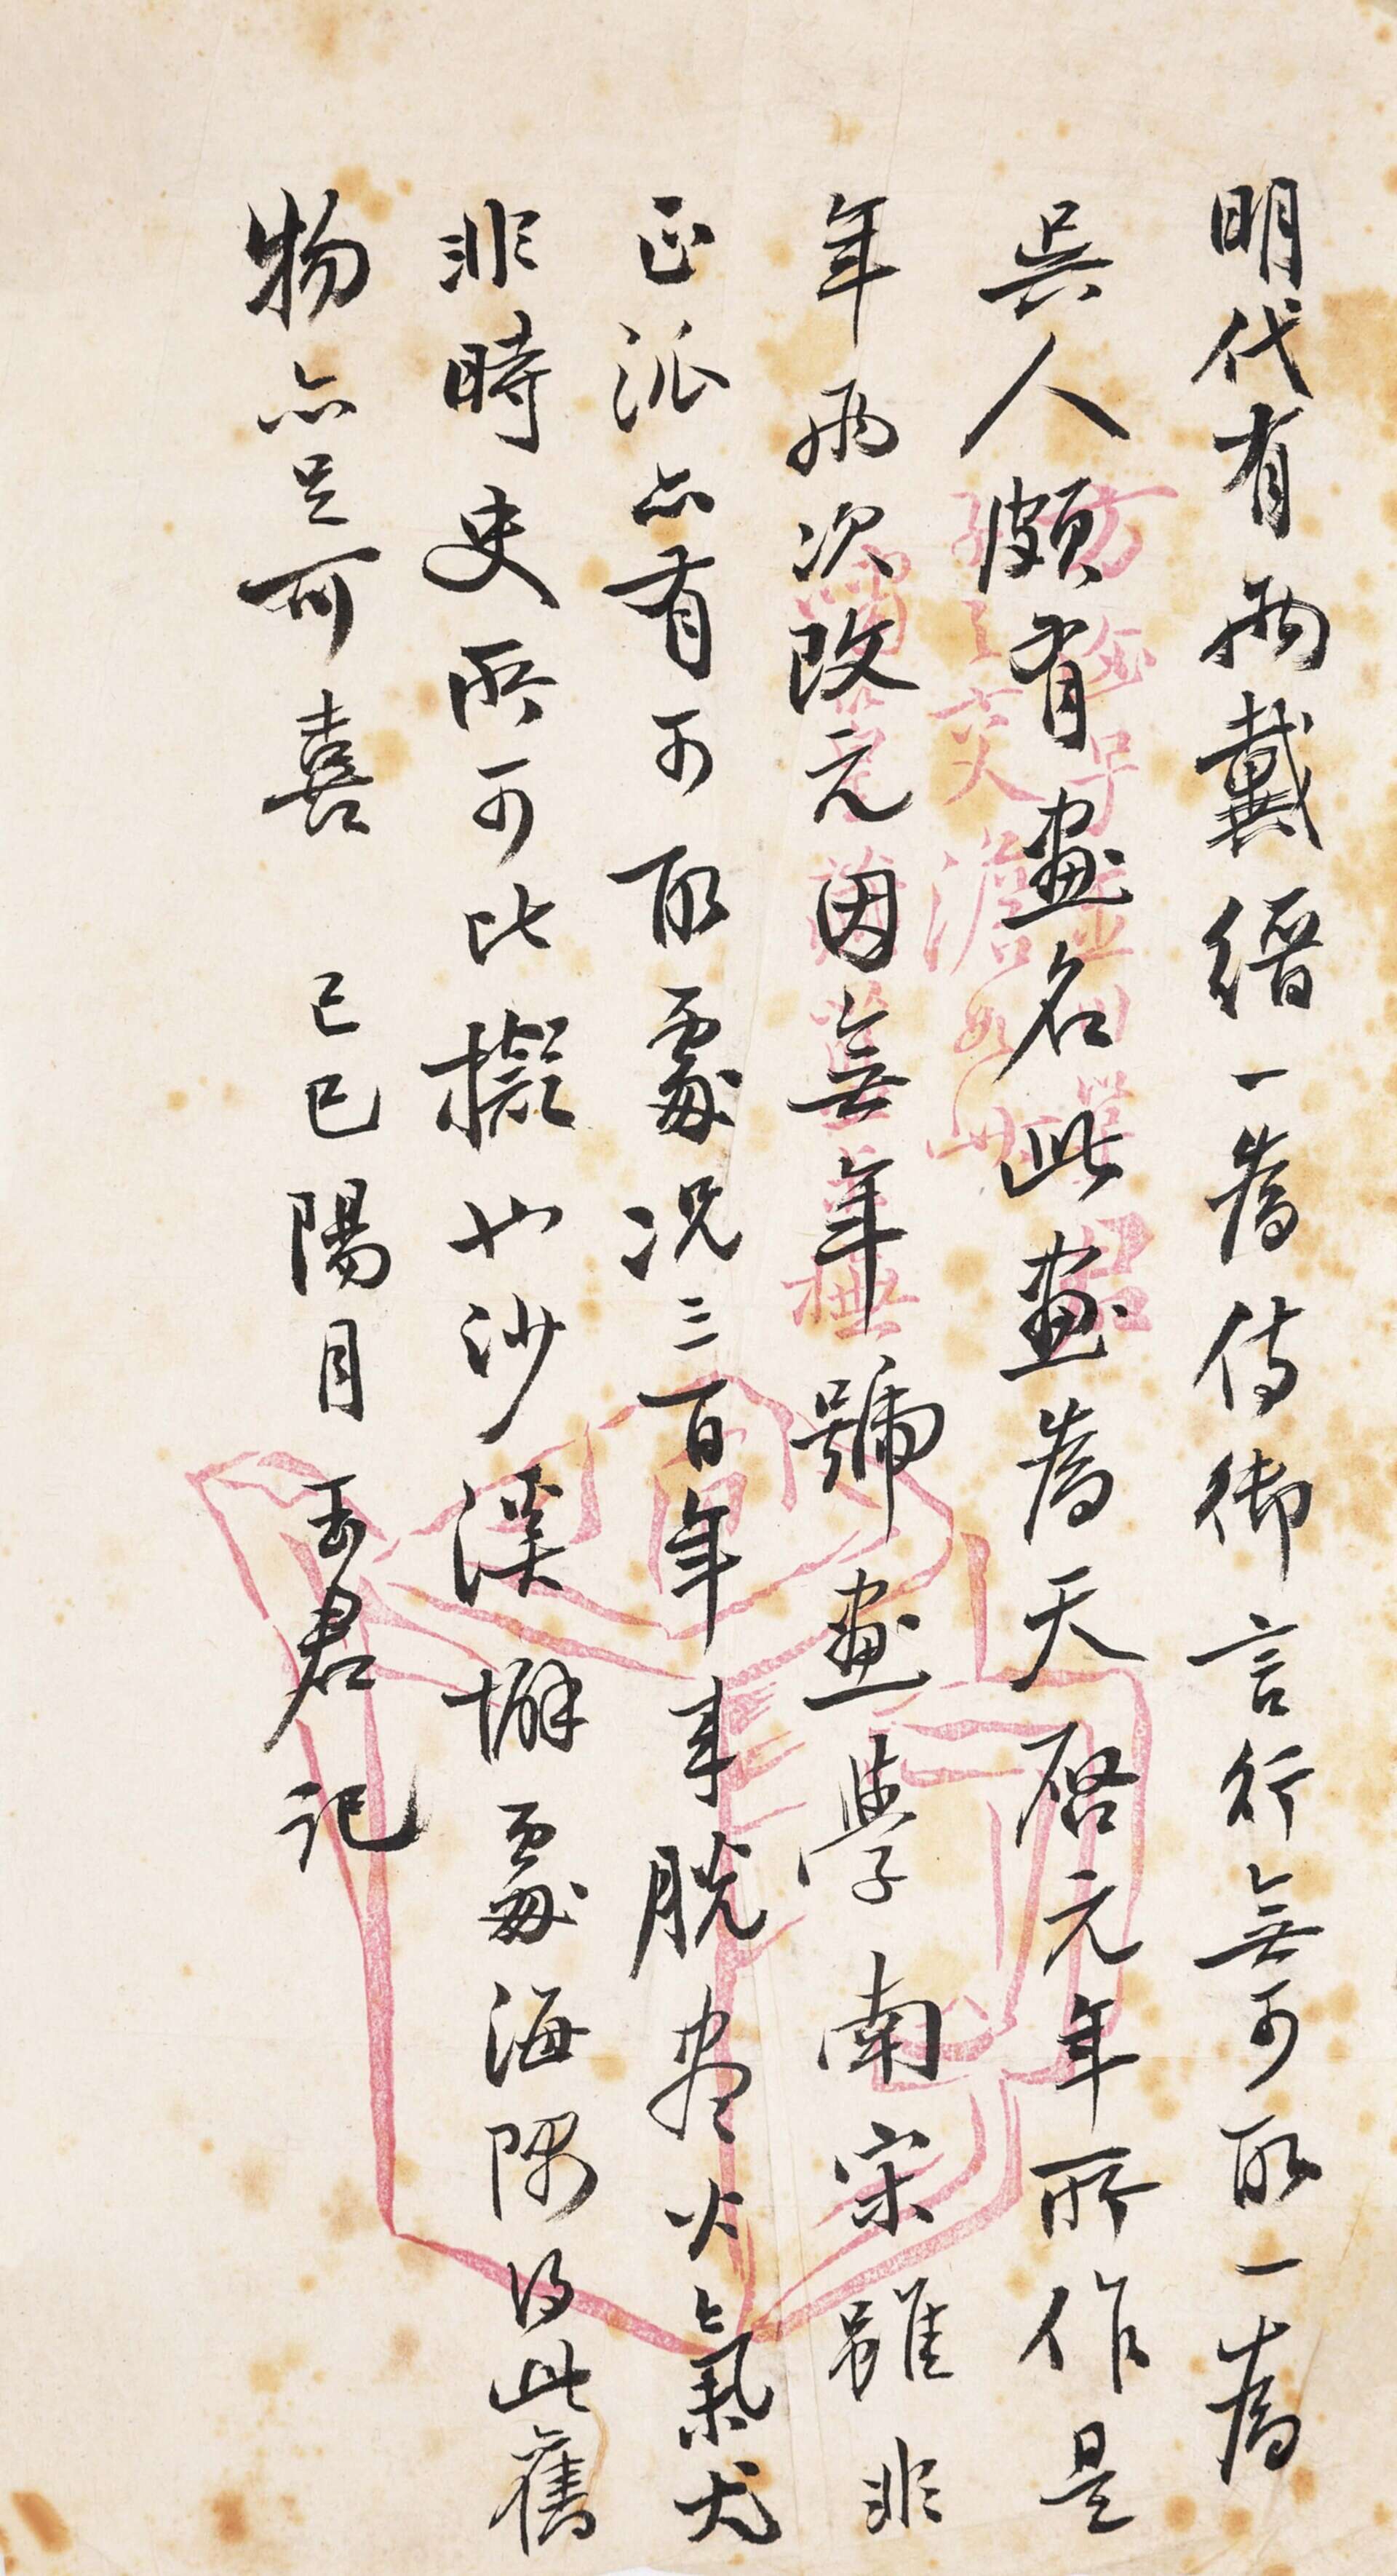 明代有兩戴縉一為侍御言行無可取一為
吳人頗有畫名此畫為天啓元年所作是
年兩次改元因無年號畫學南宋雖非
正派亦有可取處況三百年來脫盡火氣尤
非時史所可比擬也沙溪僻處海隅得此舊
物亦足可喜 己巳陽月 玉君記